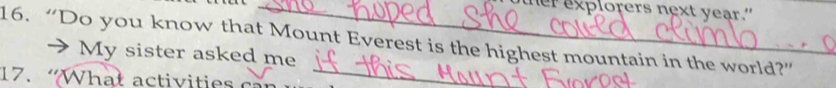 she hoped she could climb ... other explorers next year."
16. "Do you know that Mount Everest is the highest mountain in the world?"
→ My sister asked me if this Mount Everest
17. "What activities can